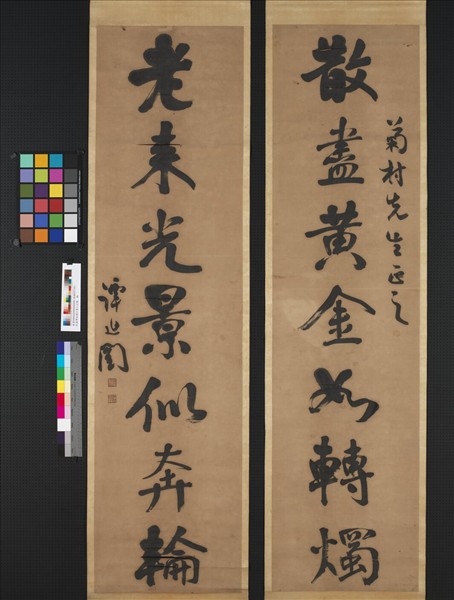 菊村先生正之
散盡黄金如轉燭
老来光景似奔輪
譚延闓